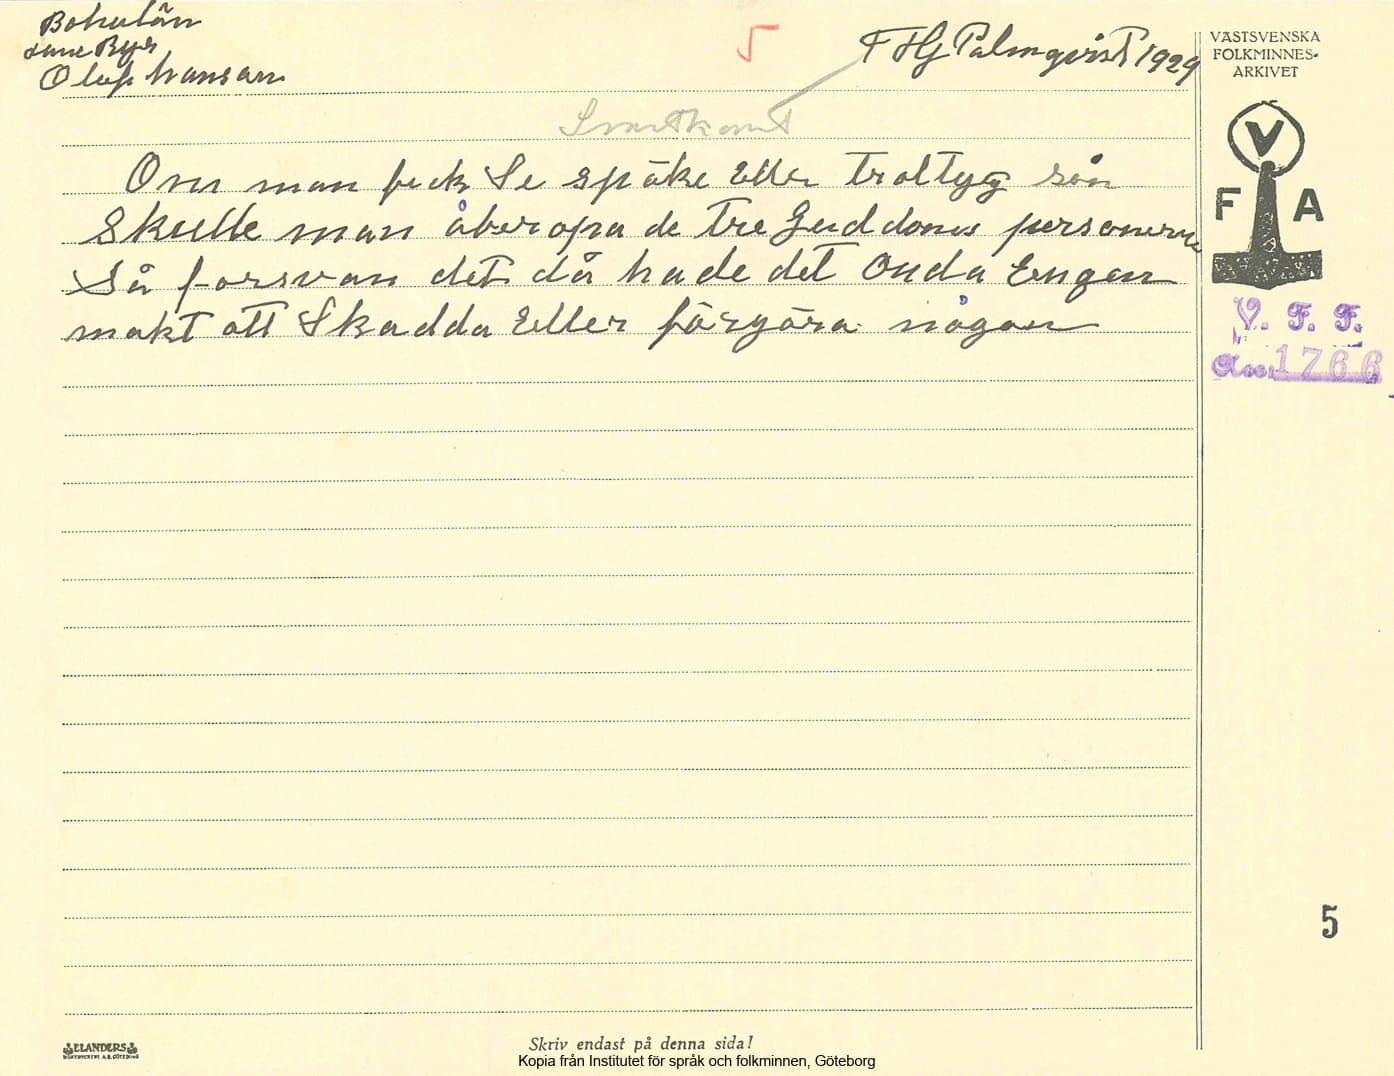 Bohuslän
Lane Ryr
Olof hansan
5
F Hj Palmqvist 1929
VÄSTSVENSKA
FOLKMINNES-
ARKIVET
V
F A
Om man feck Se spöke Eller troltyg sån
Skulle man åberopa de tre Guddoms personerna
Så forsvan det då hade det Onda Engen
makt att Skadda Eller förgöra någon
V. F. F.
Acc: 1766
5
ELANDERS
Skriv endast på denna sida!
Kopia från Institutet för språk och folkminnen, Göteborg